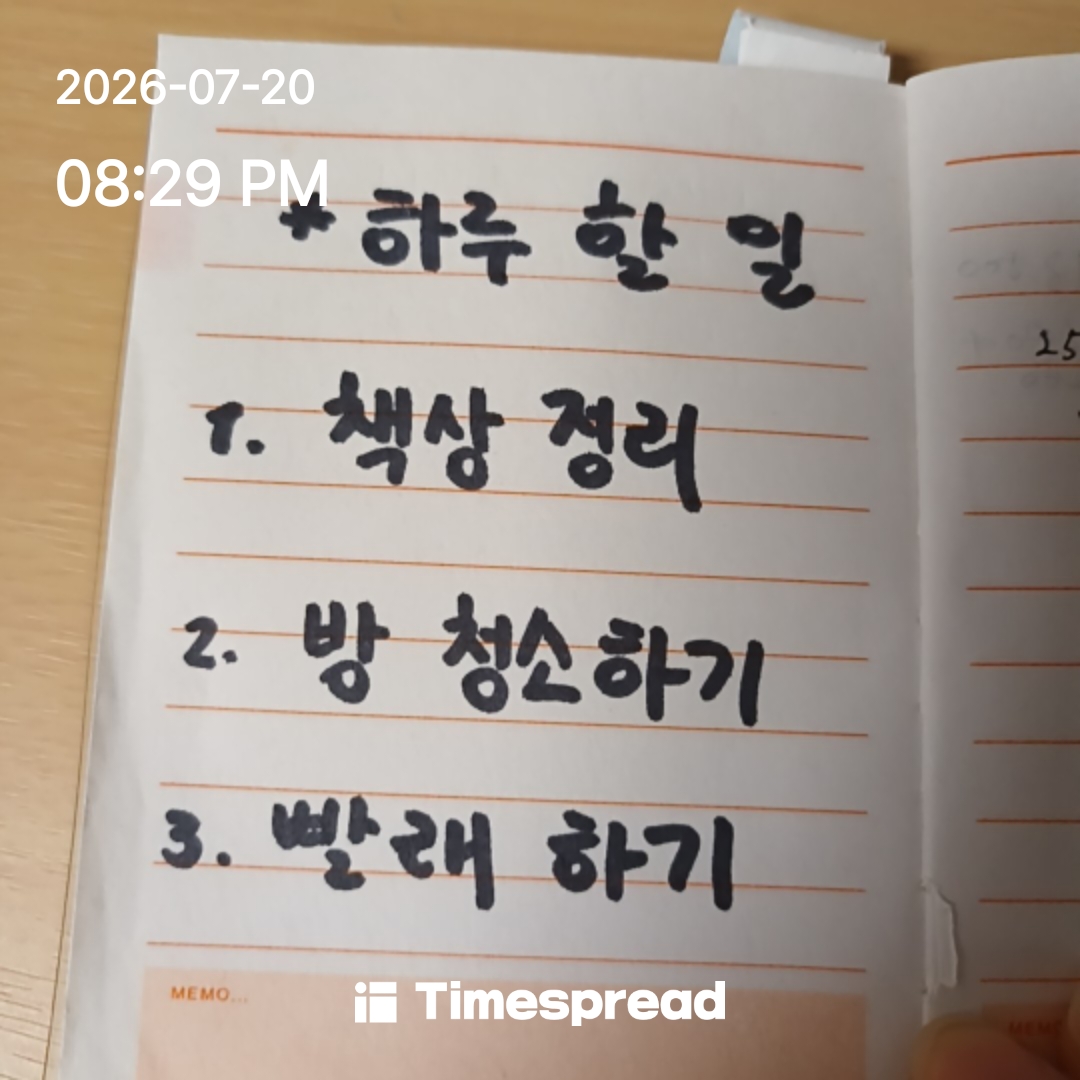 2026-07-20
08:29 PM
* 하루 할 일
1. 책상 정리
2. 방 청소하기
3. 빨래 하기
MEMO...
Timespread
25
MEMO